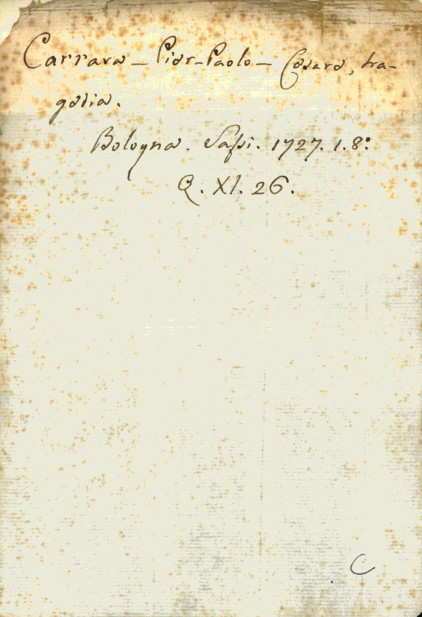 Carrara - Pier-Paolo - Cesare, tra-
gedia.
Bologna. Sassi. 1727. 1. 8º
Q. XI. 26.
C